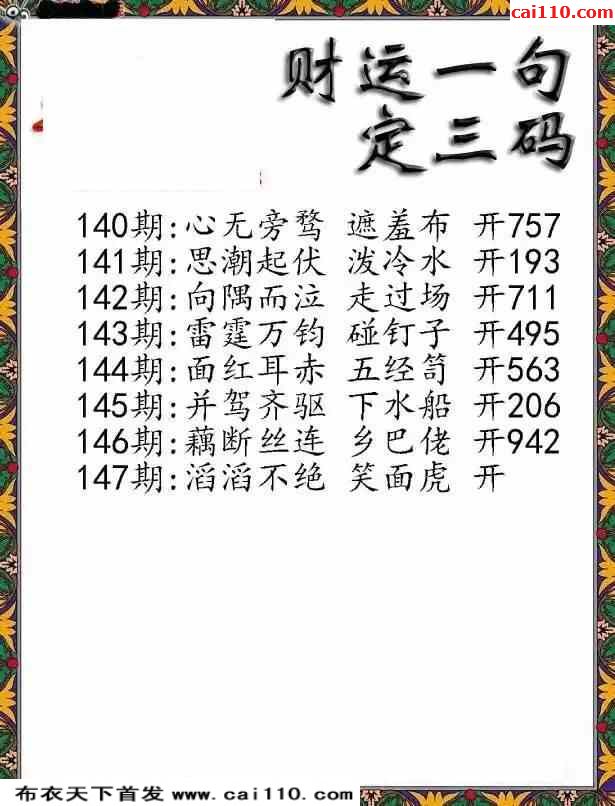 cai110.com
财运一句
定三码
140期:心无旁骛 遮羞布 开757
141期:思潮起伏 泼冷水 开193
142期:向隅而泣 走过场 开711
143期:雷霆万钧 碰钉子 开495
144期:面红耳赤 五经笥 开563
145期:并驾齐驱 下水船 开206
146期:藕断丝连 乡巴佬 开942
147期:滔滔不绝 笑面虎 开
布衣天下首发 www.cai110.com